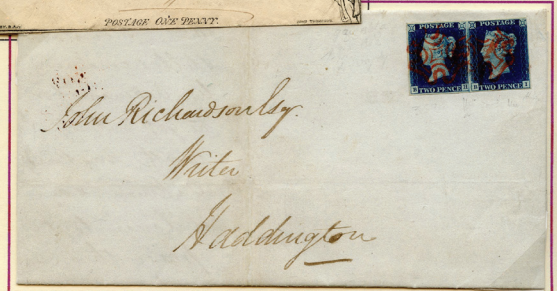 POSTAGE ONE PENNY.
POSTAGE POSTAGE
TWO PENCE TWO PENCE
John Richardson Esq.
Writer
Haddington